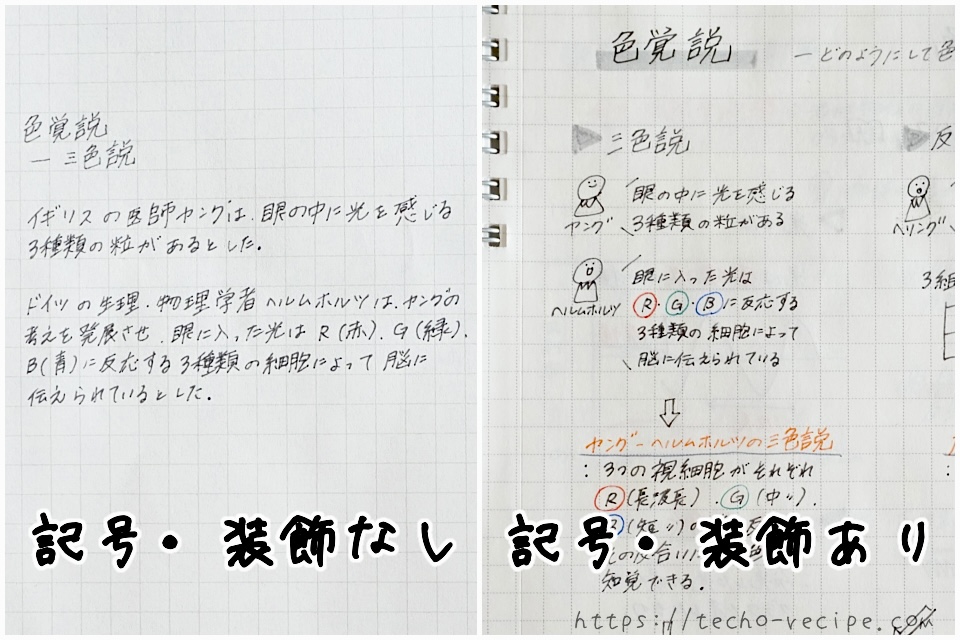 色覚説
― 三色説
イギリスの医師ヤングは、眼の中に光を感じる
3種類の粒があるとした。
ドイツの生理・物理学者ヘルムホルツは、ヤングの
考えを発展させ、眼に入った光は R(赤)、G(緑)、
B(青)に反応する3種類の細胞によって脳に
伝えられているとした。
記号・装飾なし
色覚説
―どのようにして色
三色説
眼の中に光を感じる
3種類の粒がある
ヤング
眼に入った光は
R・G・Bに反応する
3種類の細胞によって
脳に伝えられている
ヘルムホルツ
ヤング－ヘルムホルツの三色説
：3つの視細胞がそれぞれ
R(長波長)、G(中〃)、
(短〃)の
知覚できる。
反
ヘリング
3細
記号・装飾あり
https://techo-recipe.com